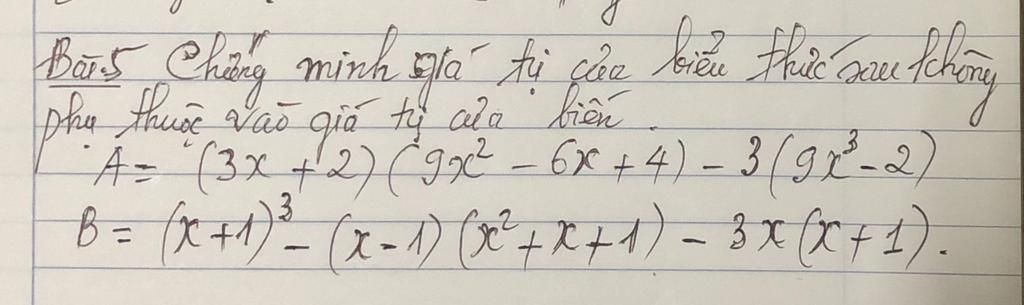 Bài 5 Chứng minh giá trị của biểu thức sau không
phụ thuộc vào giá trị của biến.
A = (3x + 2)(9x² - 6x + 4) - 3(9x³ - 2)
B = (x + 1)³ - (x - 1)(x² + x + 1) - 3x(x + 1).